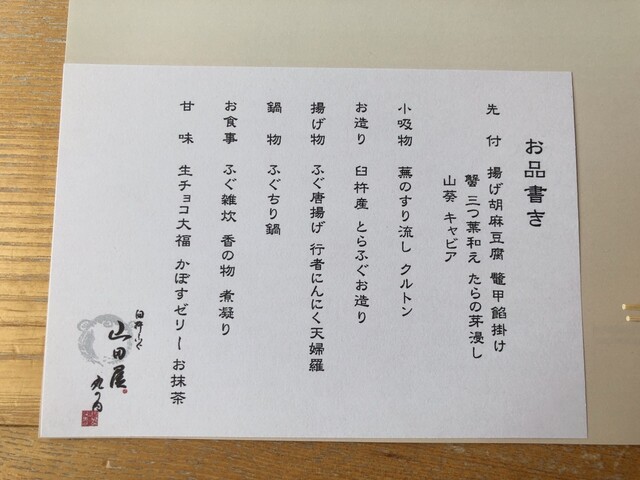 お品書き
先付 揚げ胡麻豆腐 鼈甲餡掛け
蟹 三つ葉和え たらの芽浸し
山葵 キャビア
小吸物 蕪のすり流し クルトン
お造り 臼杵産 とらふぐお造り
揚げ物 ふぐ唐揚げ 行者にんにく天婦羅
鍋物 ふぐちり鍋
お食事 ふぐ雑炊 香の物 煮凝り
甘味 生チョコ大福 かぼすゼリー お抹茶
臼杵ふぐ
山田屋
丸の内